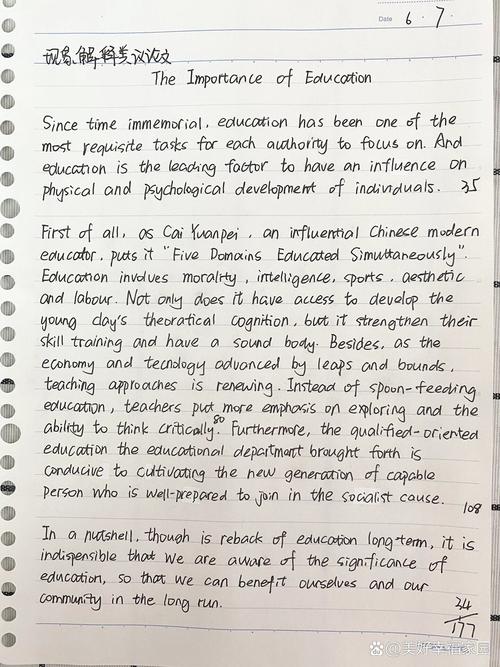 Date 6.7
现象解释类议论文
The Importance of Education
Since time immemorial, education has been one of the
most requisite tasks for each authority to focus on. And
education is the leading factor to have an influence on
physical and psychological development of individuals. 35
First of all, as Cai Yuanpei, an influential Chinese modern
educator, puts it "Five Domains Educated Simultaneously".
Education involves morality, intelligence, sports, aesthetic
and labour. Not only does it have access to develop the
young clay's theoratical cognition, but it strengthen their
skill training and have a sound body. Besides, as the
economy and tecnology advanced by leaps and bounds,
teaching approaches is renewing. Instead of spoon-feeding
education, teachers put more emphasis on exploring and the
ability to think critically. 80 Furthermore, the qualified-oriented
education the educational department brought forth is
conducive to cultivating the new generation of capable
person who is well-prepared to join in the socialist cause.
108
In a nutshell, though is reback of education long-term, it is
indispensible that we are aware of the significance of
education, so that we can benefit ourselves and our
community in the long run.
34
177
美好幸福家园